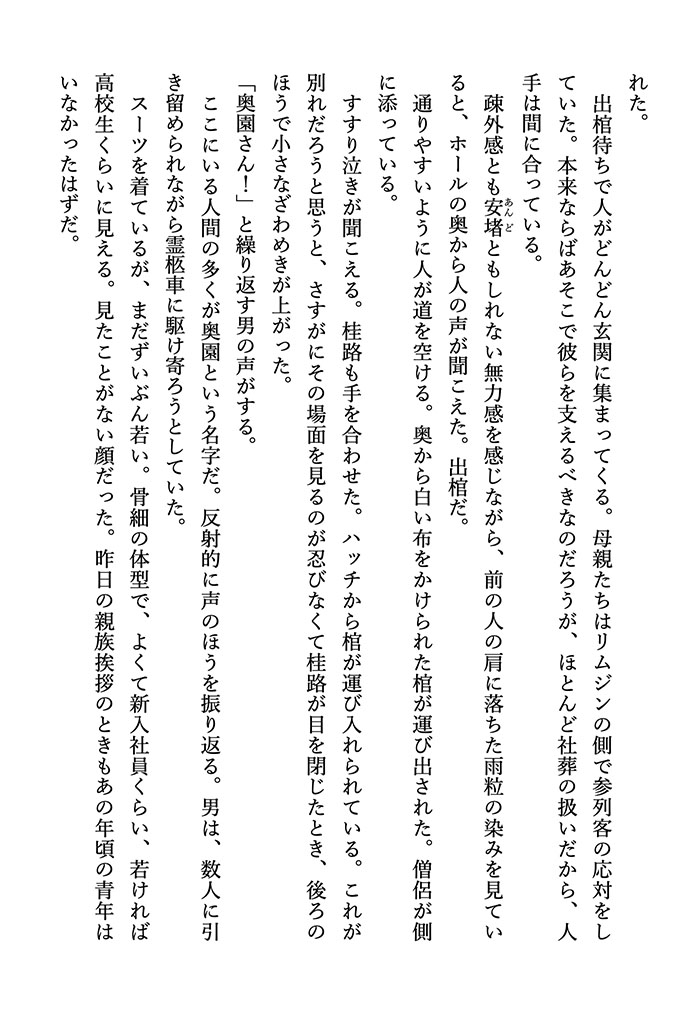 れた。
　出棺待ちで人がどんどん玄関に集まってくる。母親たちはリムジンの側で参列客の応対をし
ていた。本来ならばあそこで彼らを支えるべきなのだろうが、ほとんど社葬の扱いだから、人
手は間に合っている。
　疎外感とも安堵ともしれない無力感を感じながら、前の人の肩に落ちた雨粒の染みを見てい
あんど
ると、ホールの奥から人の声が聞こえた。出棺だ。
　通りやすいように人が道を空ける。奥から白い布をかけられた棺が運び出された。僧侶が側
に添っている。
　すすり泣きが聞こえる。桂路も手を合わせた。ハッチから棺が運び入れられている。これが
別れだろうと思うと、さすがにその場面を見るのが忍びなくて桂路が目を閉じたとき、後ろの
ほうで小さなざわめきが上がった。
「奥園さん！」と繰り返す男の声がする。
　ここにいる人間の多くが奥園という名字だ。反射的に声のほうを振り返る。男は、数人に引
き留められながら霊柩車に駆け寄ろうとしていた。
　スーツを着ているが、まだずいぶん若い。骨細の体型で、よくて新入社員くらい、若ければ
高校生くらいに見える。見たことがない顔だった。昨日の親族挨拶のときもあの年頃の青年は
いなかったはずだ。